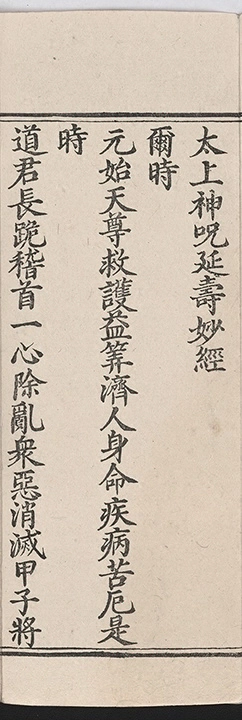 太上神呪延壽妙經
爾時
元始天尊救護益筭濟人身命疾病苦厄是
時
道君長跪稽首一心除亂衆惡消滅甲子將